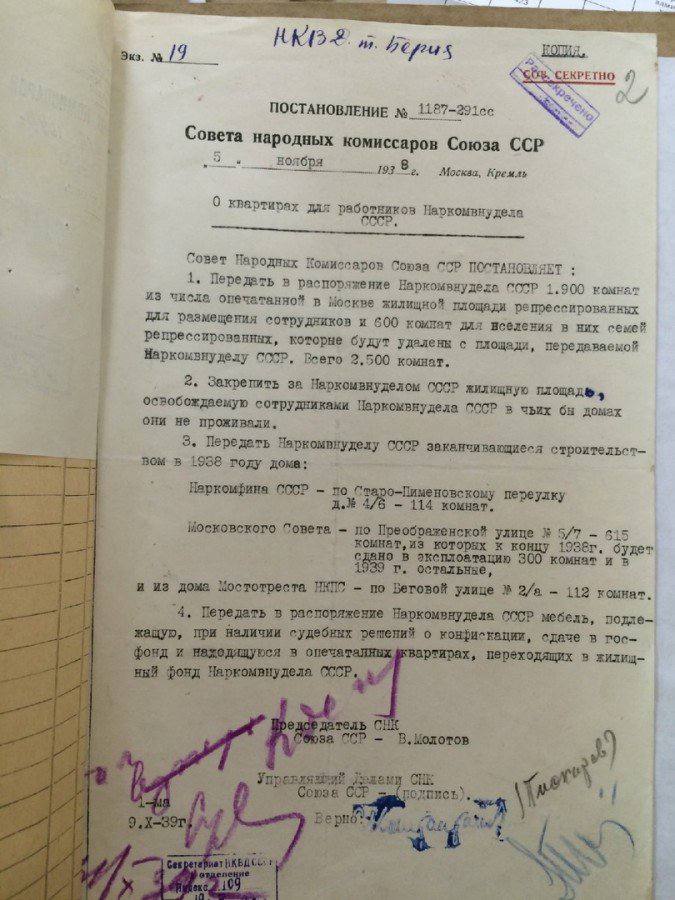 НКВД. т. Берия
Экз. № 19
КОПИЯ.
СОВ. СЕКРЕТНО
Рассекречено
2
ПОСТАНОВЛЕНИЕ № 1187-291сс
Совета народных комиссаров Союза ССР
„ 5 „ ноября 1938 г. Москва, Кремль
О квартирах для работников Наркомвнудела
СССР.
Совет Народных Комиссаров Союза ССР ПОСТАНОВЛЯЕТ :
1. Передать в распоряжение Наркомвнудела СССР 1.900 комнат
из числа опечатанной в Москве жилищной площади репрессированных
для размещения сотрудников и 600 комнат для вселения в них семей
репрессированных, которые будут удалены с площади, передаваемой
Наркомвнуделу СССР. Всего 2.500 комнат.
2. Закрепить за Наркомвнуделом СССР жилищную площадь,
освобождаемую сотрудниками Наркомвнудела СССР в чьих бы домах
они не проживали.
3. Передать Наркомвнуделу СССР заканчивающиеся строительст-
вом в 1938 году дома:
Наркомфина СССР – по Старо-Пименовскому переулку
д.№ 4/6 – 114 комнат.
Московского Совета – по Преображенской улице № 5/7 – 615
комнат,из которых к концу 1938г. будет
сдано в эксплоатацию 300 комнат и в
1939 г. остальные,
и из дома Мостотреста НКПС – по Беговой улице № 2/а – 112 комнат.
4. Передать в распоряжение Наркомвнудела СССР мебель, подле-
жащую, при наличии судебных решений о конфискации, сдаче в гос-
фонд и находящуюся в опечатанных квартирах, переходящих в жилищ-
ный фонд Наркомвнудела СССР.
Председатель СНК
Союза ССР – В.Молотов
Управляющий Делами СНК
Союза ССР – (подпись).
(Пискарев)
1-ма
9.X-39г.
Верно:
Секретариат НКВД СССР
отделение
Индекс 109